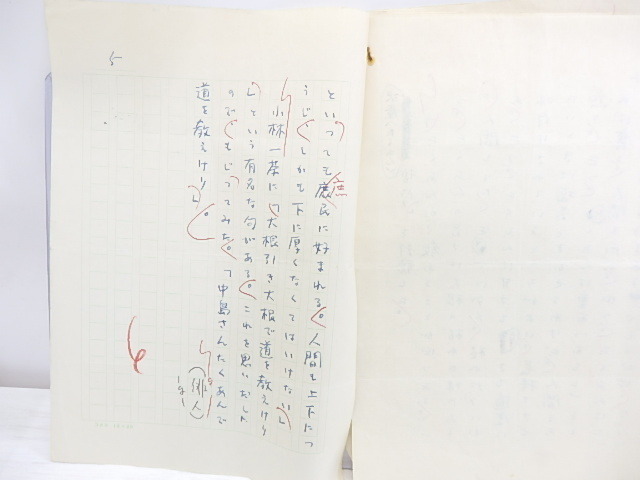 といっても庶民に好まれる。人間も上下につ
うじ、しかも下に厚くなくてはいけない」
小林一茶に「大根引き大根で道を教えけり
」という有名な句がある。これを思いだした
のでもじってみた。「中島さんたくあんで
道を教えけり」。
(俳人)
5
6